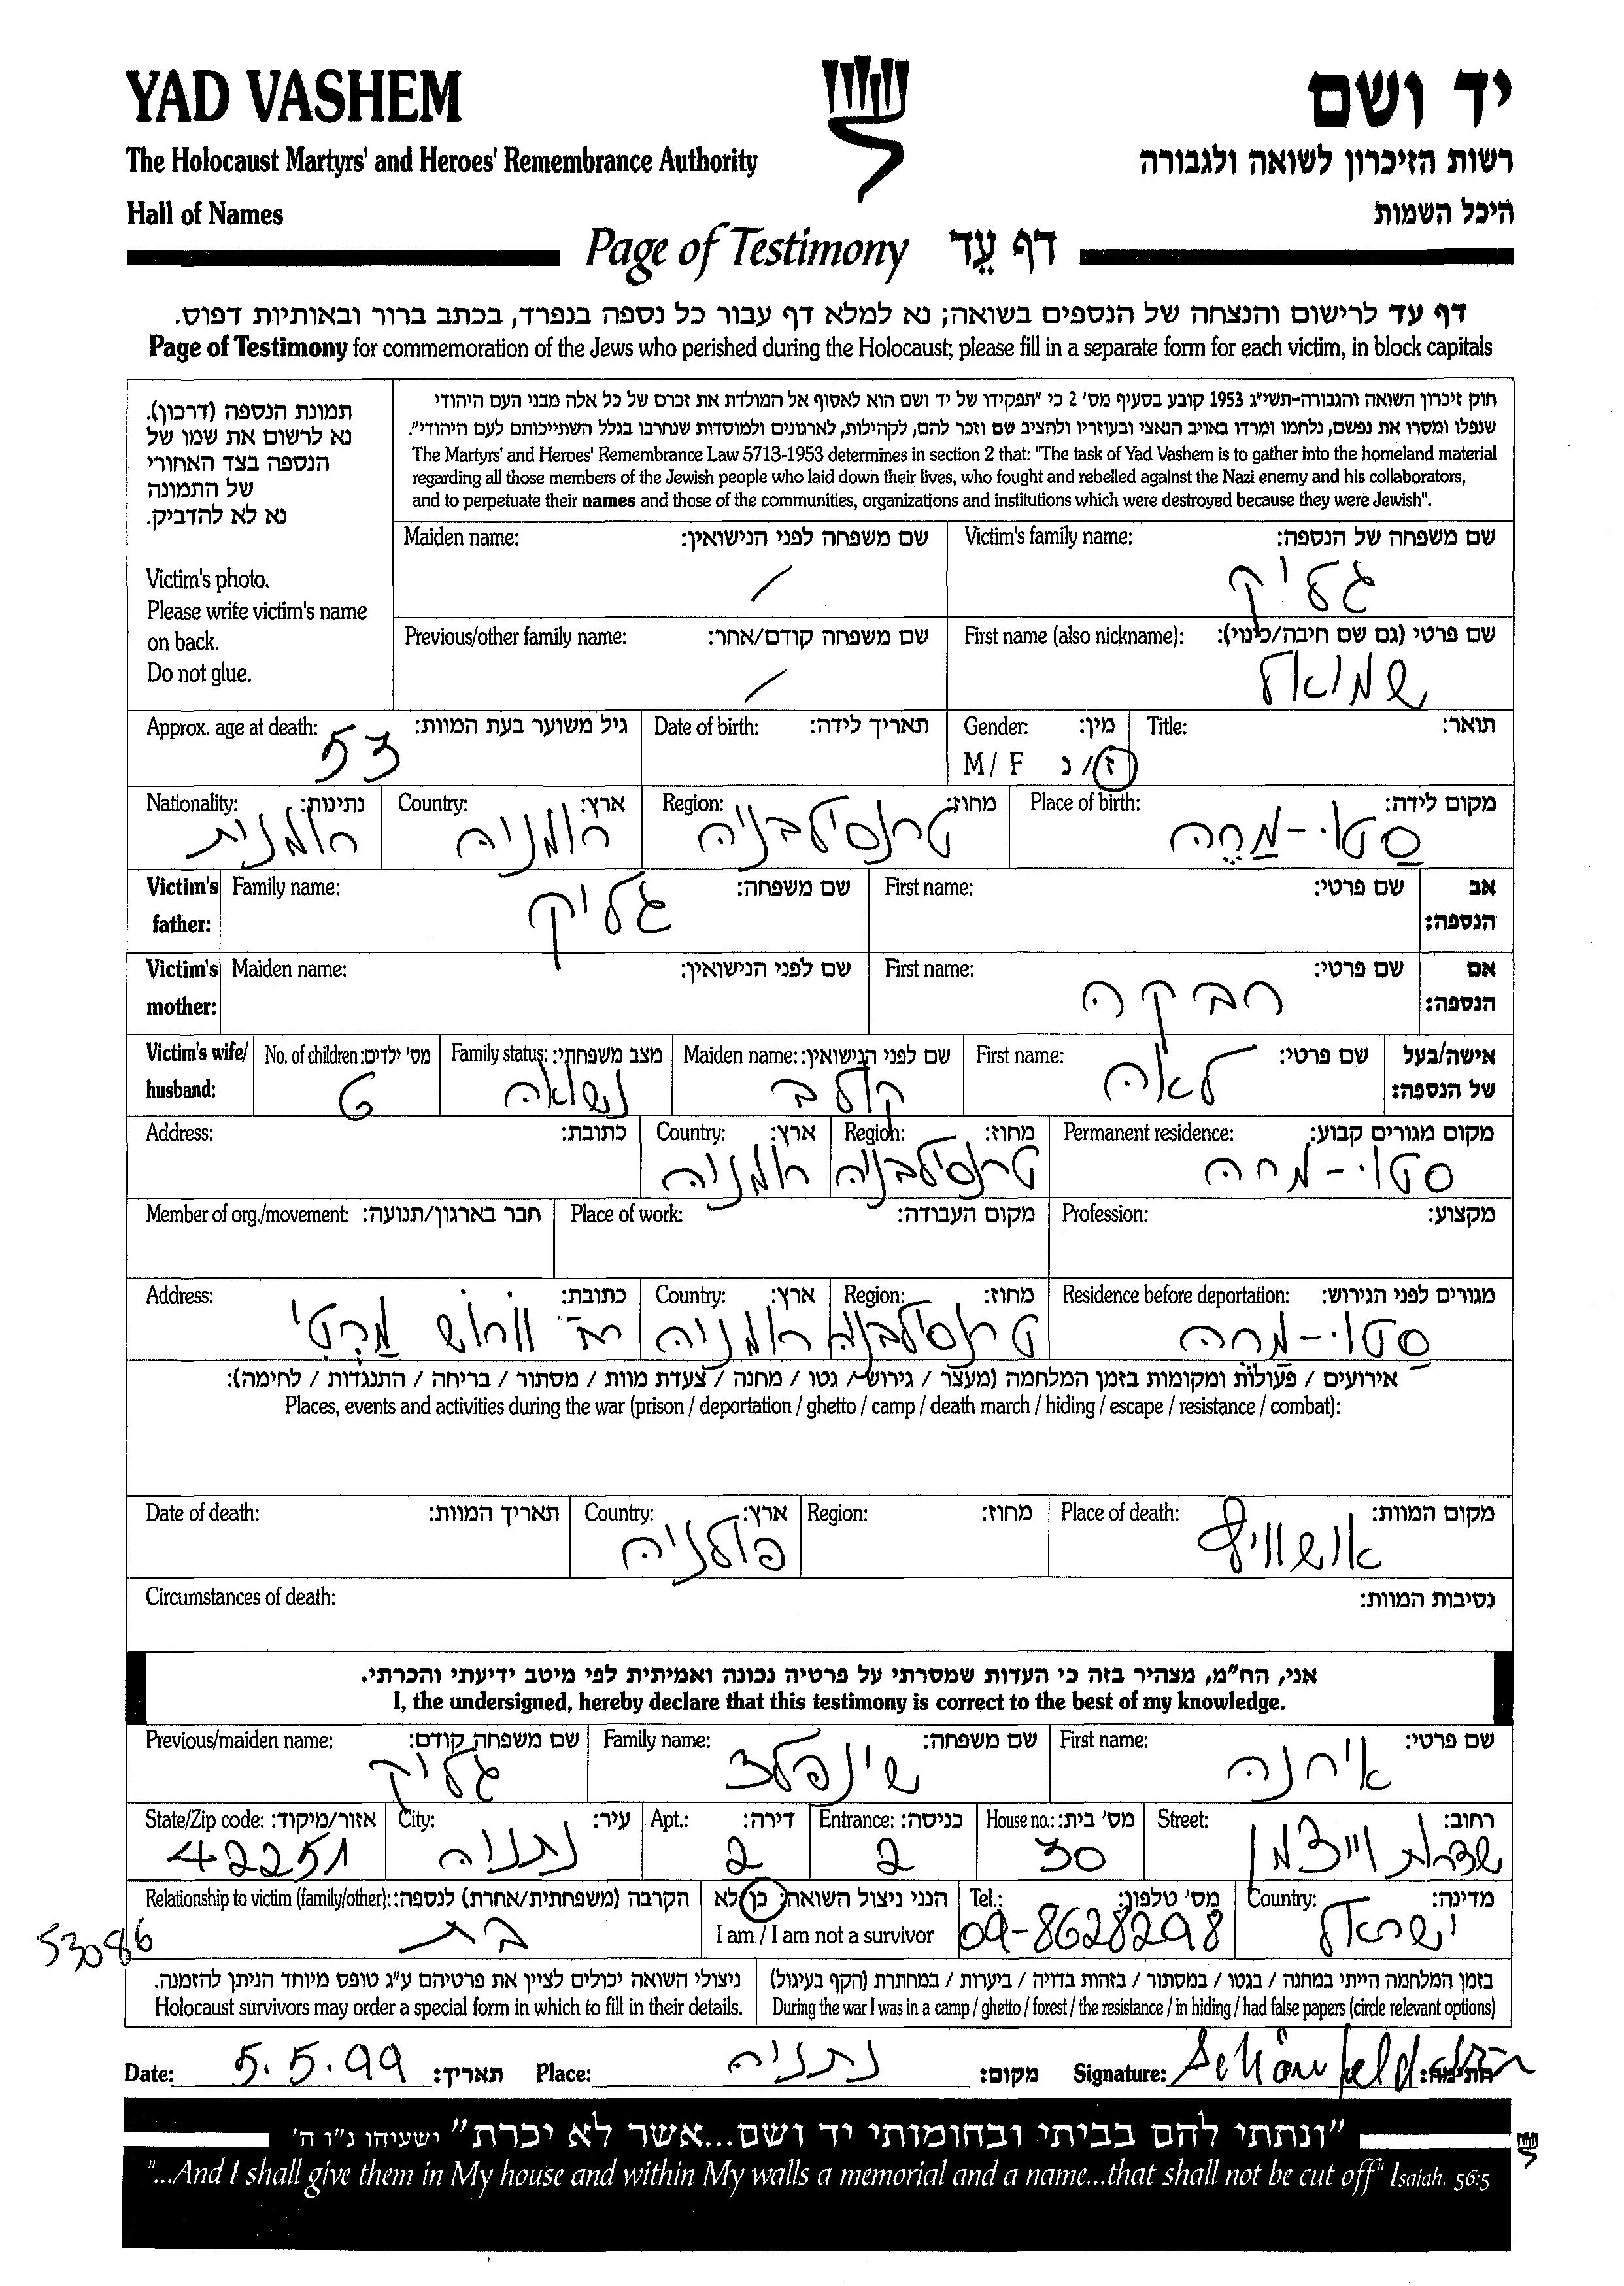 YAD VASHEM
יד ושם
The Holocaust Martyrs' and Heroes' Remembrance Authority
רשות הזיכרון לשואה ולגבורה
Hall of Names
היכל השמות
Page of Testimony דף עֵד
דף עד לרישום והנצחה של הנספים בשואה; נא למלא דף עבור כל נספה בנפרד, בכתב ברור ובאותיות דפוס.
Page of Testimony for commemoration of the Jews who perished during the Holocaust; please fill in a separate form for each victim, in block capitals
תמונת הנספה (דרכון).
נא לרשום את שמו של
הנספה בצד האחורי
של התמונה
נא לא להדביק.
Victim's photo.
Please write victim's name
on back.
Do not glue.
חוק זיכרון השואה והגבורה-תשי"ג 1953 קובע בסעיף מס' 2 כי "תפקידו של יד ושם הוא לאסוף אל המולדת את זכרם של כל אלה מבני העם היהודי
שנפלו ומסרו את נפשם, נלחמו ומרדו באויב הנאצי ובעוזריו ולהציב שם וזכר להם, לקהילות, לארגונים ולמוסדות שנחרבו בגלל השתייכותם לעם היהודי".
The Martyrs' and Heroes' Remembrance Law 5713-1953 determines in section 2 that: "The task of Yad Vashem is to gather into the homeland material
regarding all those members of the Jewish people who laid down their lives, who fought and rebelled against the Nazi enemy and his collaborators,
and to perpetuate their names and those of the communities, organizations and institutions which were destroyed because they were Jewish".
Victim's family name: שם משפחה של הנספה:
גליק
Maiden name: שם משפחה לפני הנישואין:
/
First name (also nickname): שם פרטי (גם שם חיבה/כינוי):
שמואל
Previous/other family name: שם משפחה קודם/אחר:
/
Title: תואר:
Gender: מין:
M / F ז/נ
Date of birth: תאריך לידה:
Approx. age at death: גיל משוער בעת המוות:
53
Place of birth: מקום לידה:
סַטו-מַרֶה
Region: מחוז:
טרנסילבניה
Country: ארץ:
רומניה
Nationality: נתינות:
רומנית
Victim's father: אב הנספה:
First name: שם פרטי:
Family name: שם משפחה:
גליק
Victim's mother: אם הנספה:
First name: שם פרטי:
רבקה
Maiden name: שם לפני הנישואין:
Victim's wife/ husband: אישה/בעל של הנספה:
First name: שם פרטי:
לאה
Maiden name: שם לפני הנישואין:
קולב
Family status: מצב משפחתי:
נשואה
No. of children: מס' ילדים:
6
Permanent residence: מקום מגורים קבוע:
סטו-מרה
Region: מחוז:
טרנסילבניה
Country: ארץ:
רומניה
Address: כתובת:
Profession: מקצוע:
Place of work: מקום העבודה:
Member of org./movement: חבר בארגון/תנועה:
Residence before deportation: מגורים לפני הגירוש:
סַטו-מַרה
Region: מחוז:
טרנסילבניה
Country: ארץ:
רומניה
Address: כתובת:
אירועים / פעולות ומקומות בזמן המלחמה (מעצר / גירוש / גטו / מחנה / צעדת מוות / מסתור / בריחה / התנגדות / לחימה):
Places, events and activities during the war (prison / deportation / ghetto / camp / death march / hiding / escape / resistance / combat):
Place of death: מקום המוות:
אושוויץ
Region: מחוז:
Country: ארץ:
פולניה
Date of death: תאריך המוות:
Circumstances of death: נסיבות המוות:
אני, הח"מ, מצהיר בזה כי העדות שמסרתי על פרטיה נכונה ואמיתית לפי מיטב ידיעתי והכרתי.
I, the undersigned, hereby declare that this testimony is correct to the best of my knowledge.
First name: שם פרטי:
אירנה
Family name: שם משפחה:
שינפלד
Previous/maiden name: שם משפחה קודם:
גליק
Street: רחוב:
שדרות וייצמן
House no.: מס' בית:
30
Entrance: כניסה:
2
Apt.: דירה:
2
City: עיר:
נתניה
State/Zip code: אזור/מיקוד:
42251
Country: מדינה:
ישראל
Tel.: מס' טלפון:
09-8628298
הנני ניצול השואה: כן לא
I am / I am not a survivor
Relationship to victim (family/other): הקרבה (משפחתית/אחרת) לנספה:
בת
53086
בזמן המלחמה הייתי במחנה / בגטו / במסתור / בזהות בדויה / ביערות / במחתרת (הקף בעיגול)
During the war I was in a camp / ghetto / forest / the resistance / in hiding / had false papers (circle relevant options)
ניצולי השואה יכולים לציין את פרטיהם ע"ג טופס מיוחד הניתן להזמנה.
Holocaust survivors may order a special form in which to fill in their details.
Date: 5.5.99 תאריך: Place: נתניה מקום: Signature: Schönfeld חתימה:
"ונתתי להם בביתי ובחומותי יד ושם...אשר לא יכרת" ישעיהו נ"ו ה'
"...And I shall give them in My house and within My walls a memorial and a name...that shall not be cut off" Isaiah, 56:5